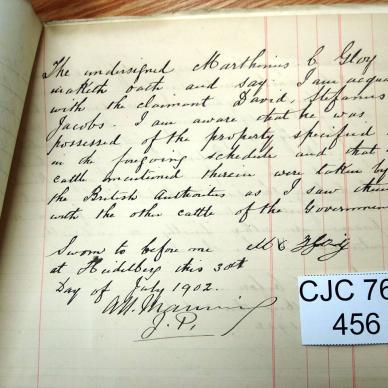 The undersigned Marthinus C Gloy
maketh oath and say. I am acqua
with the claimant David Stefanus
Jacobs. I am aware that he was
possessed of the property specified
in the foregoing schedule and that
cattle mentioned therein were taken by
the British Authorities as I saw them
with the other cattle of the Governmen
Sworn to before me M C Gloy
at Heidelberg this 30th
Day of July 1902.
J. P.
CJC 76
456